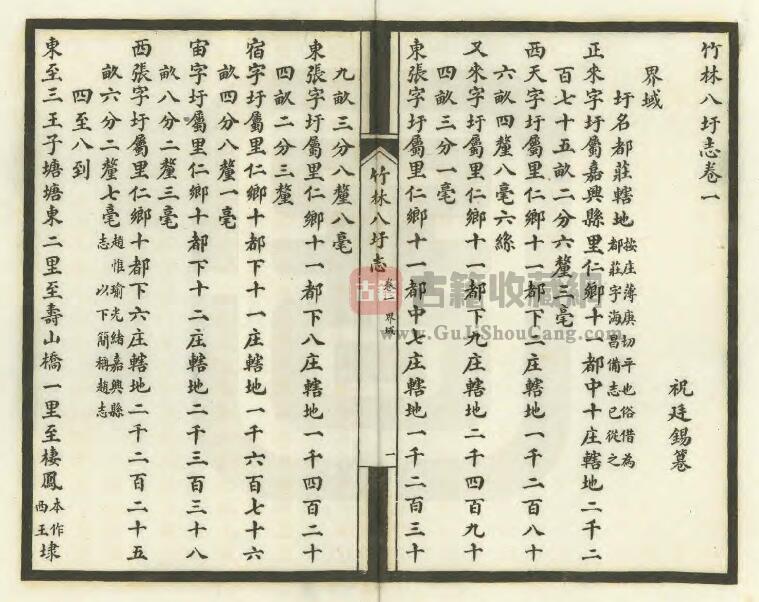 竹林八圩志卷一
祝廷錫篹
界域
圩名都莊轄地按庄薄庚切平也俗借為
都莊字海昌備志已從之
正來字圩屬嘉興縣里仁鄉十一都中十庄轄地二千二
百七十五畝二分六釐三毫
西天字圩屬里仁鄉十一都下二庄轄地一千二百八十
六畝四釐八毫六絲
又來字圩屬里仁鄉十一都下九庄轄地二千四百九十
四畝三分一毫
東張字圩屬里仁鄉十一都中七庄轄地一千二百三十
竹林八圩志
卷一 界域
一
九畝三分八釐八毫
東張字圩屬里仁鄉十一都下八庄轄地一千四百二十
四畝二分三釐
宿字圩屬里仁鄉十都下十一庄轄地一千六百七十六
畝四分八釐一毫
宙字圩屬里仁鄉十都下十二庄轄地二千三百三十八
畝八分二釐三毫
西張字圩屬里仁鄉十都下六庄轄地二千二百二十五
畝六分二釐七毫趙惟瑜光緒嘉興縣
志 以下簡稱趙志
四至八到
東至三王子塘塘東二里至壽山橋一里至棲鳳本作
西王埭
古籍
古籍收藏網
www.GuJiShouCang.com